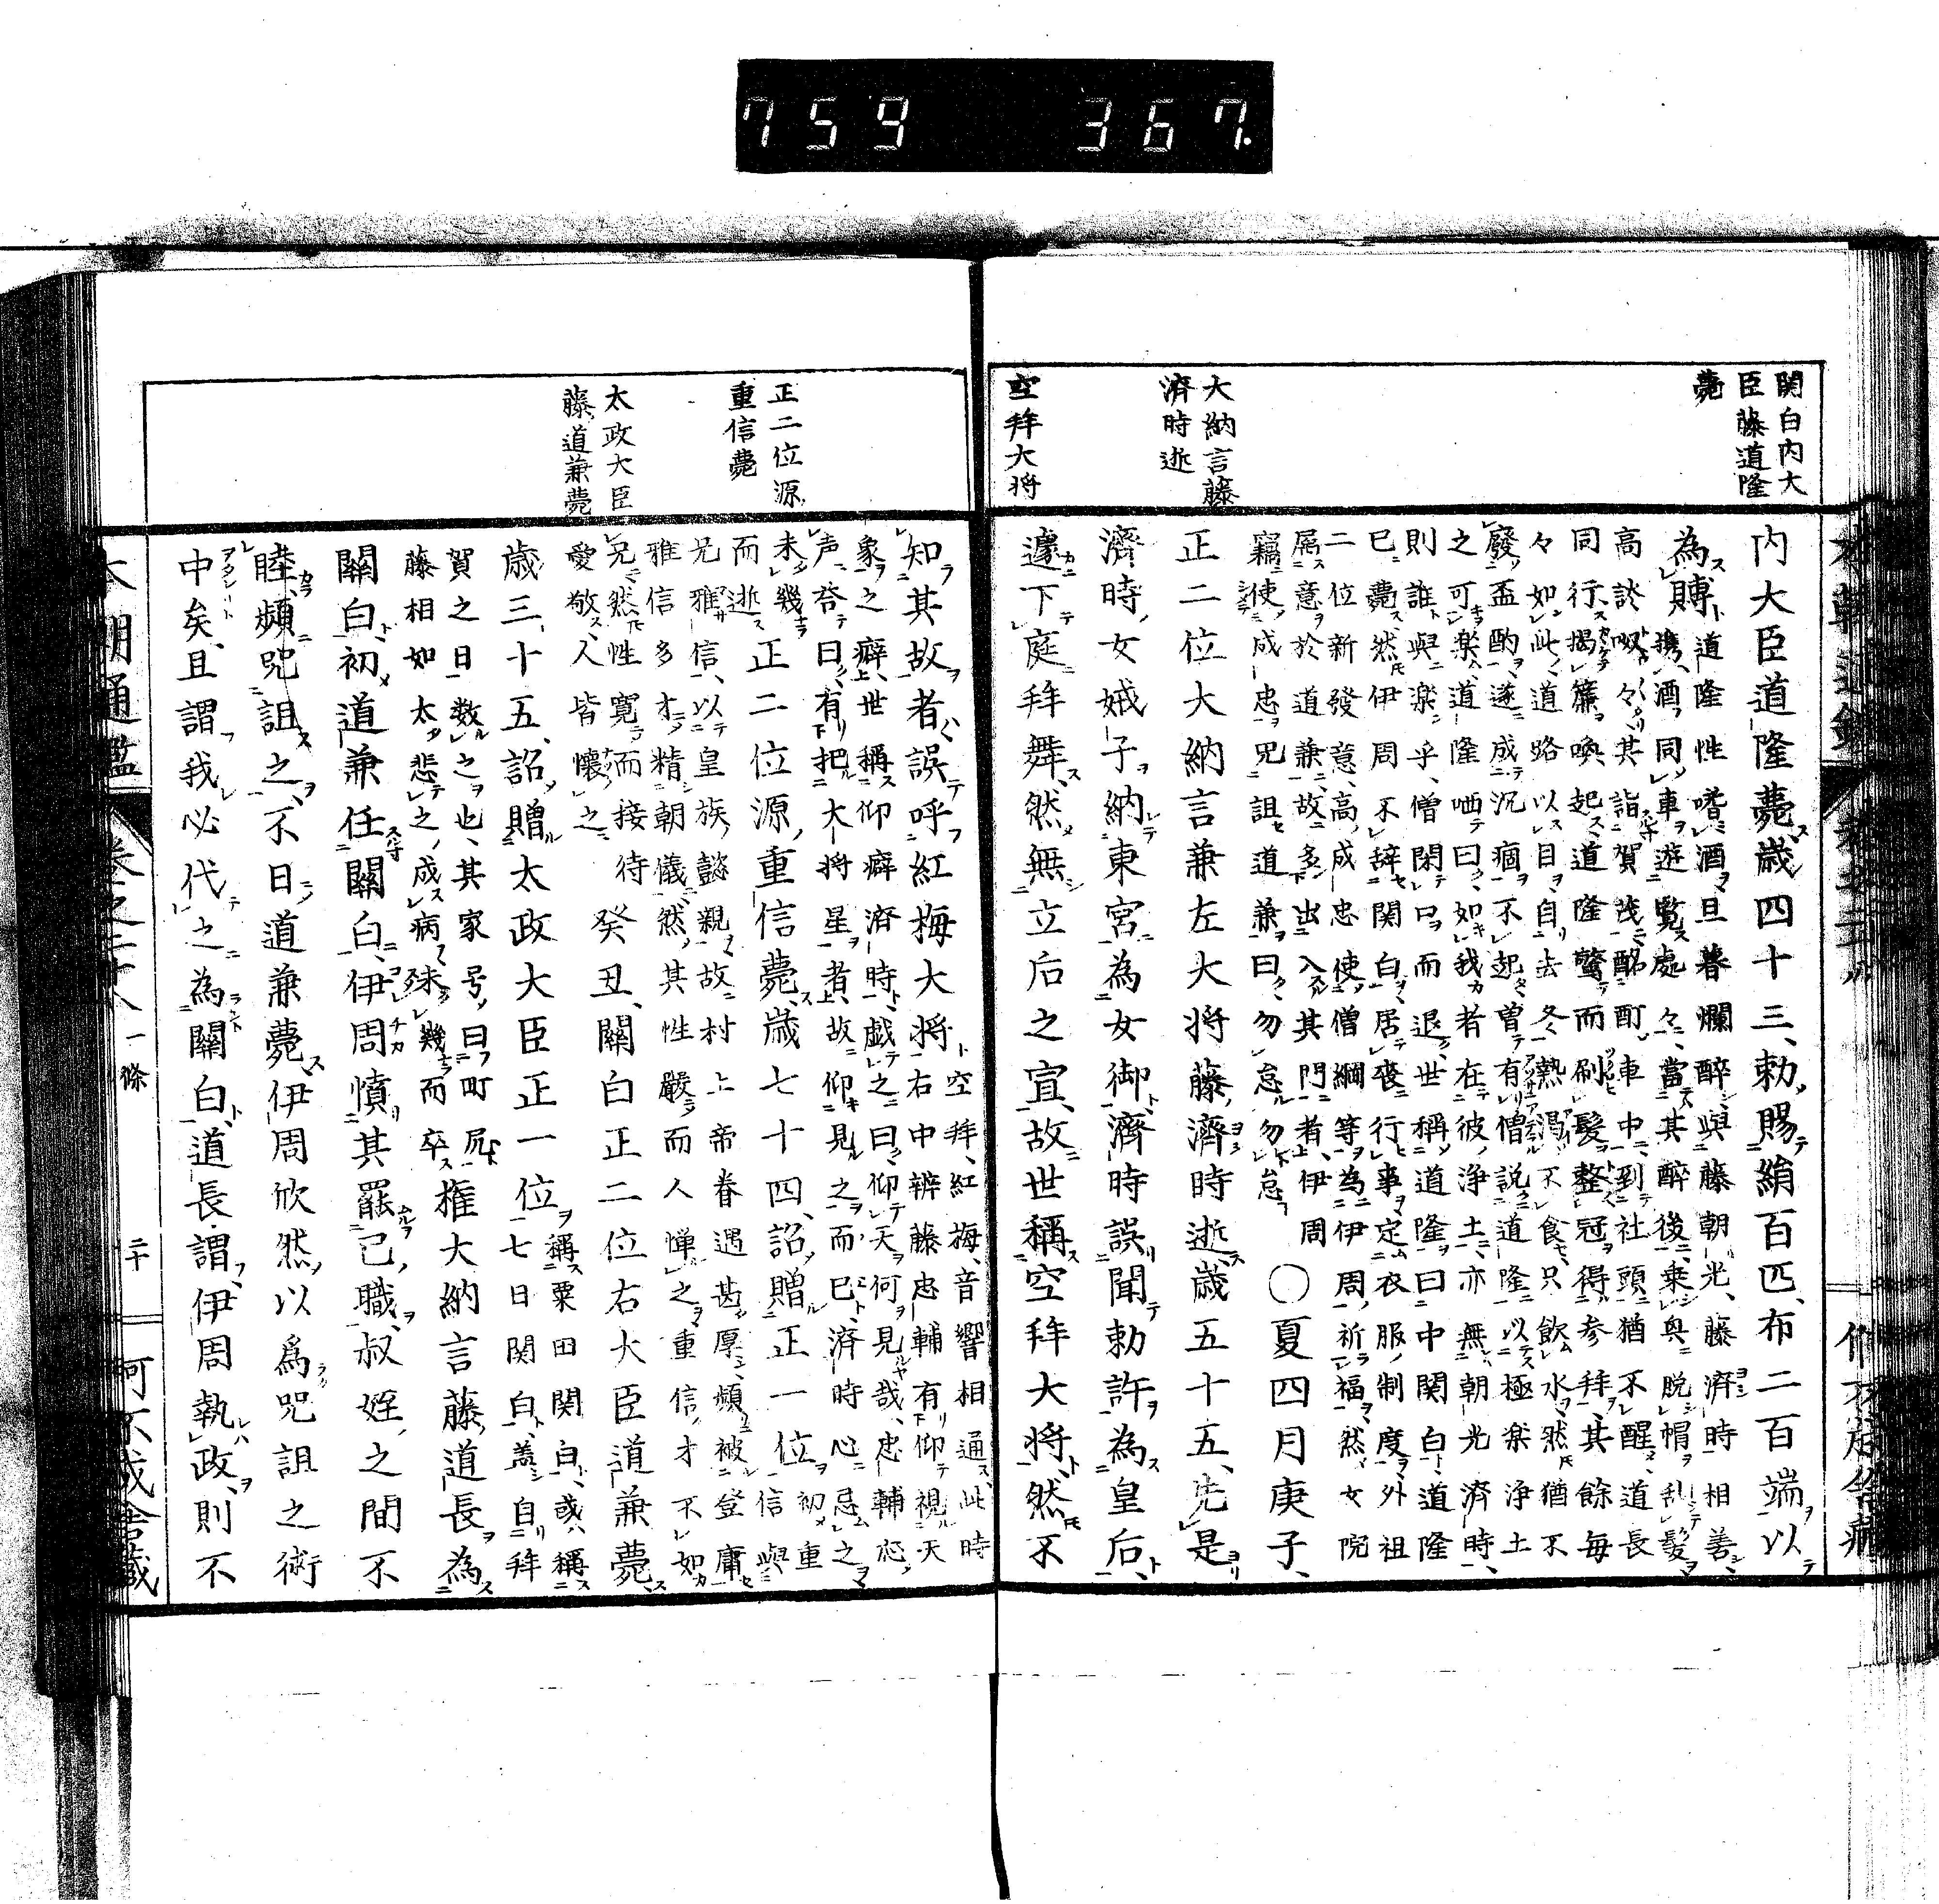 759 367.
関白内大
臣藤道隆
薨
大納言藤
濟時逝
空拜大将
内大臣道隆薨歳四十三、勅賜絹百匹、布二百端以
為賻道隆性嗜酒旦暮爛醉與藤朝光、藤濟時相善、
携酒同車遊覧處々、當其醉後、乗輿脱帽乱髪
高談呶々其詣賀茂酩酊車中、到社頭猶不醒、道長
同行掲簾喚起、道隆驚而刷髪整冠得参拜、其餘毎
々如此、道路以目、自去冬熱渇不食、只飲水、然猶不
廢盃酌、遂成沉痼不起、曽有僧説道隆以極楽浄土
之可楽、道隆哂曰、如我者在彼浄土、亦無朝光濟時、
則誰與楽乎、僧閉口而退、世稱道隆曰中関白、道隆
已薨、然伊周不辞関白、居喪行事定衣服制度、外祖
二位新發意、高成忠使僧綱等為伊周祈福、然女院
属意於道兼、故多出入其門者、伊周
竊使成忠咒詛道兼曰、勿怠勿怠
○夏四月庚子、
正二位大納言兼左大将藤濟時逝歳五十五、先是
濟時女娍子納東宮為女御、濟時誤聞勅許為皇后、
遽下庭拜舞、然無立后之宜、故世稱空拜大将、然不
正二位源
重信薨
太政大臣
藤道兼薨
知其故者誤呼紅梅大将
空拜、紅梅、音響相通、此時
右中辨藤忠輔有仰視天
象之癖、世稱仰癖濟時戯之曰、仰天何見哉、忠輔應
声答曰、有把大将星者、故仰見之、而已、濟時心忌之
未幾
而逝
正二位源重信薨、歳七十四、詔贈正一位
初重
信與
兄雅信、以皇族懿親故村上帝眷遇甚厚、頻被登庸
雅信多才精朝儀、然其性嚴、而人憚之、重信才不如
兄然性寛而接待
愛敬、人皆懐之
癸丑、關白正二位右大臣道兼薨
歳三十五、詔贈太政大臣正一位
稱粟田関白、或稱
七日関白、蓋自拜
賀之日数之也、其家号曰町尻
藤相如太悲之、成病殊幾而卒
権大納言藤道長為
關白、初道兼任關白、伊周憤其罷己職、叔姪之間不
睦、頻咒詛之、不日道兼薨伊周欣然以為咒詛之術
中矣、且謂我必代之為關白、道長謂伊周執政、則不
本朝通鑑
巻之二十八 一條
二十